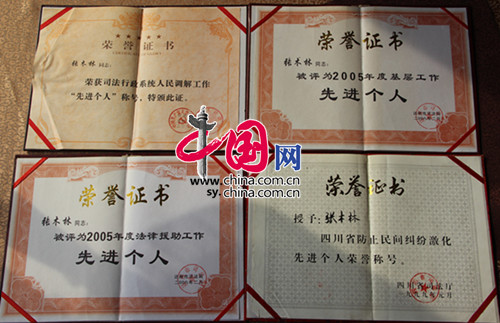 荣誉证书
张木林同志:
荣获司法行政系统人民调解工作
“先进个人”称号,特颁此证。
荣誉证书
张木林同志:
被评为2005年度基层工作
先进个人
中国网
www.china.com.cn
sy.www.china.com.cn
荣誉证书
张木林同志:
被评为2005年度法律援助工作
先进个人
荣誉证书
授予:张木林
四川省防止民间纠纷激化
先进个人荣誉称号。
四川省司法厅
一九九九年元月